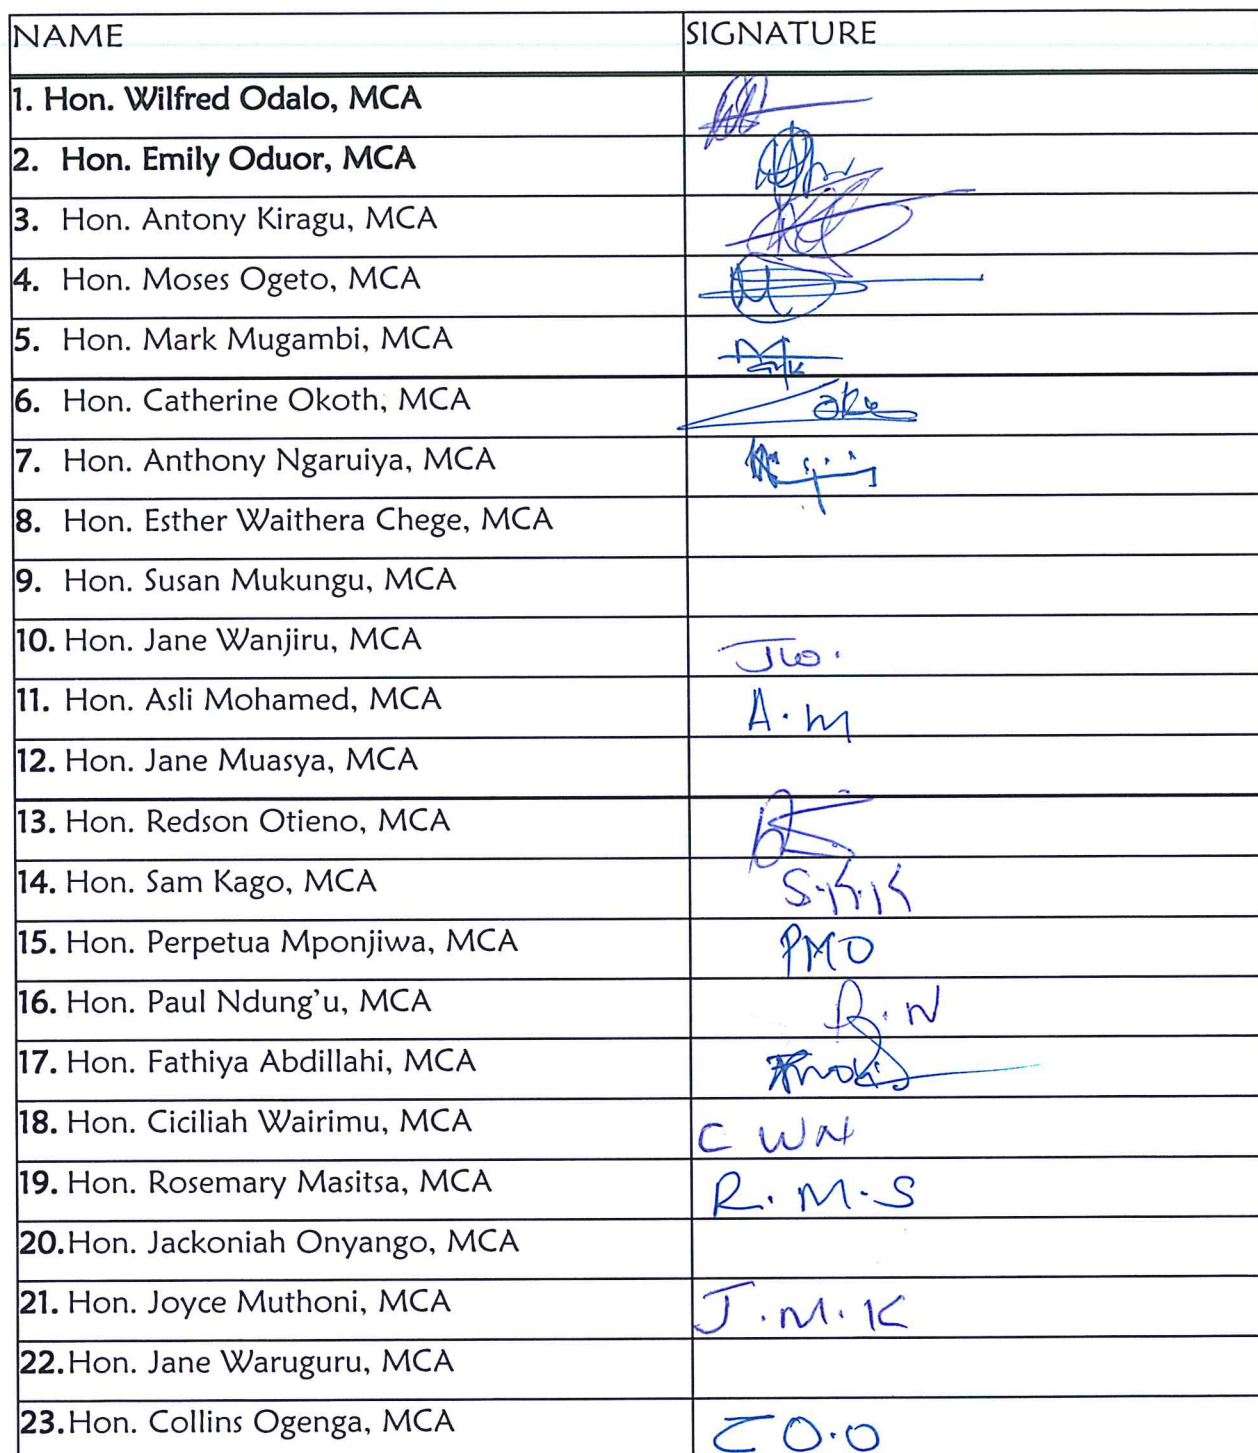 NAME SIGNATURE
1. Hon. Wilfred Odalo, MCA
2. Hon. Emily Oduor, MCA
3. Hon. Antony Kiragu, MCA
4. Hon. Moses Ogeto, MCA
5. Hon. Mark Mugambi, MCA
6. Hon. Catherine Okoth, MCA
7. Hon. Anthony Ngaruiya, MCA
8. Hon. Esther Waithera Chege, MCA
9. Hon. Susan Mukungu, MCA
10. Hon. Jane Wanjiru, MCA
11. Hon. Asli Mohamed, MCA A.M
12. Hon. Jane Muasya, MCA
13. Hon. Redson Otieno, MCA
14. Hon. Sam Kago, MCA S.K.K
15. Hon. Perpetua Mponjiwa, MCA PMO
16. Hon. Paul Ndung'u, MCA
17. Hon. Fathiya Abdillahi, MCA
18. Hon. Ciciliah Wairimu, MCA C WN
19. Hon. Rosemary Masitsa, MCA R.M.S
20. Hon. Jackoniah Onyango, MCA
21. Hon. Joyce Muthoni, MCA J.M.K
22. Hon. Jane Waruguru, MCA
23. Hon. Collins Ogenga, MCA CO.O